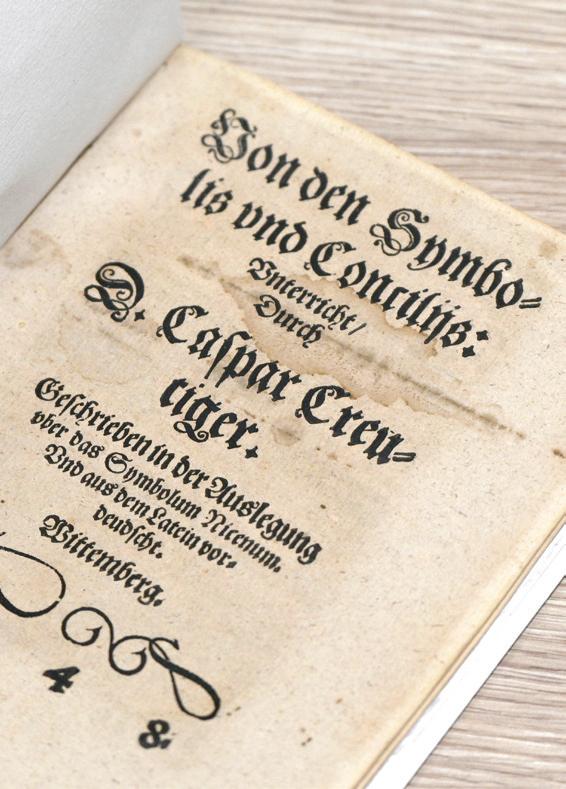 Von den Symbo⸗
lis vnd Concilijs:
Vnterricht/
Durch
D. Caſpar Creu⸗
ciger.
Geſchrieben in der Auslegung
vber das Symbolum Nicenum.
Vnd aus dem Latein vor⸗
deudſcht.
Wittemberg.
4
8.